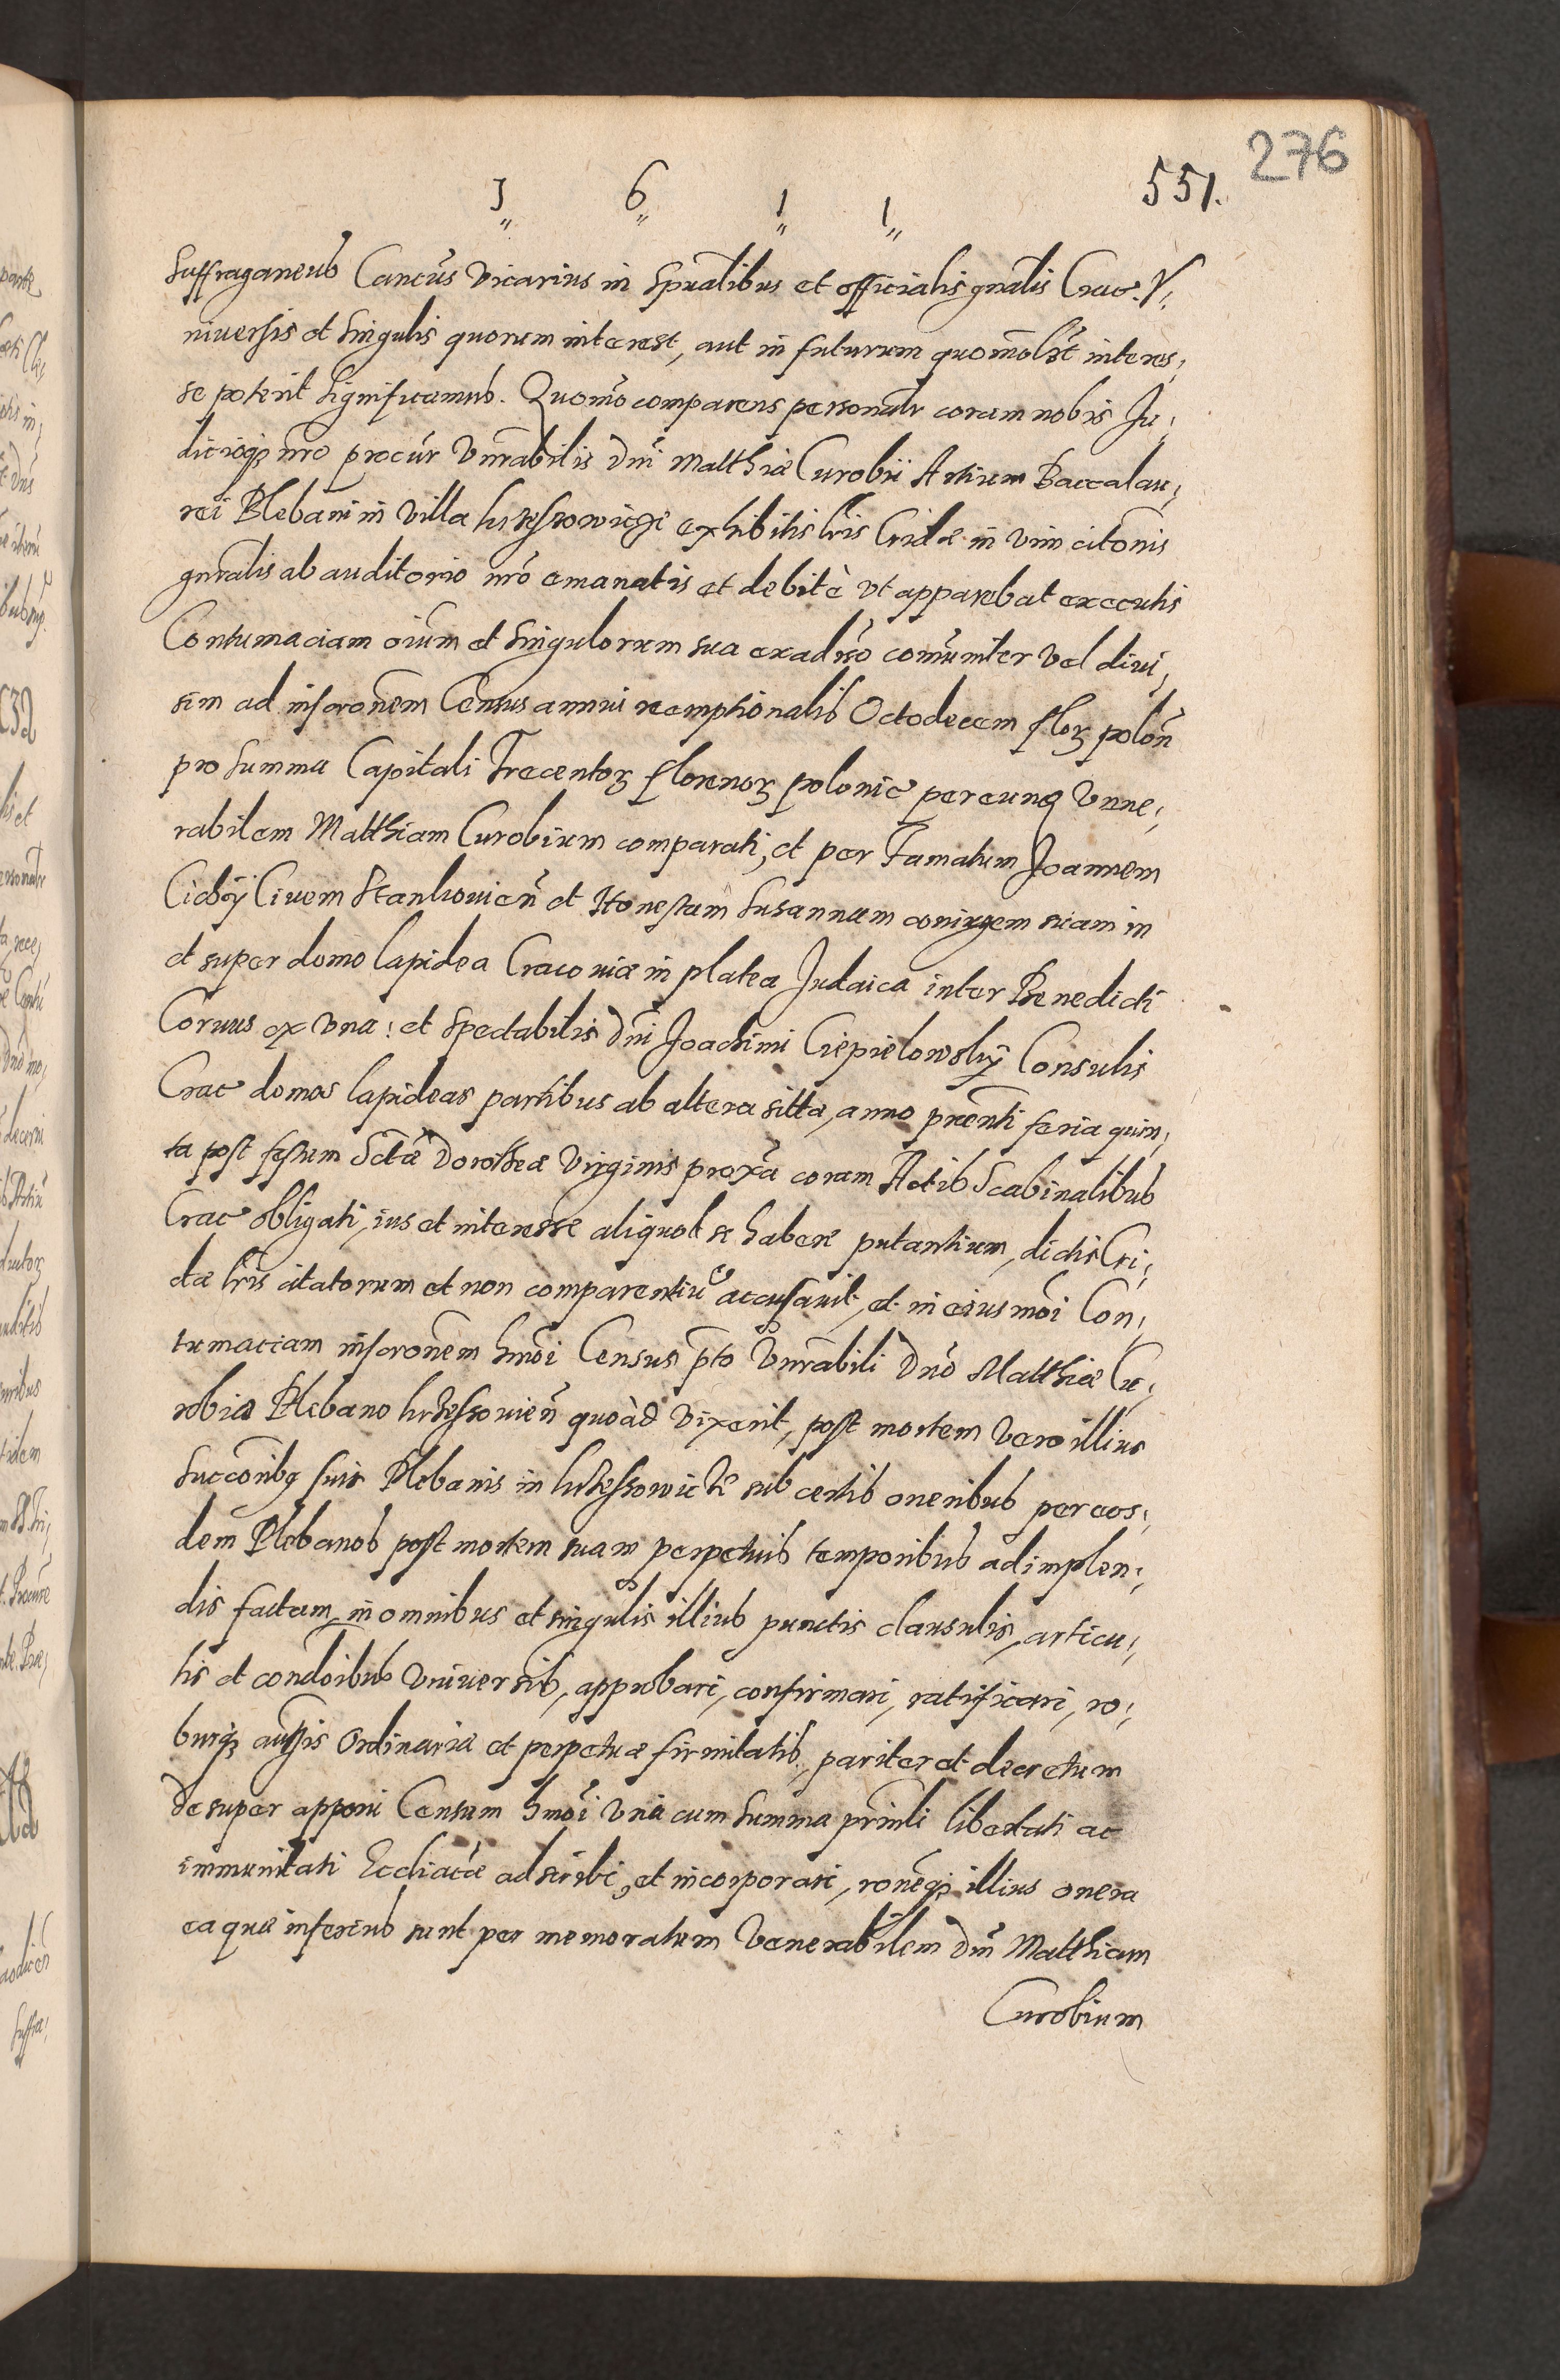 276
551.
1 6 1 1
Suffraganeus Cancũs Vicarius in Spũalibus et officialis gnãlis Crac. V;
niuersis et singulis quorum interest, aut in futurum quomõlt interes;
se poterit significamus. Quomõ comparens personalr coram nobis Ju;
dicioqȝ nrõ procũr Vnrãbilis Dni Matthiæ Curobii Artium Baccalau;
rei Plebani in Villa exhibitis lris Cridæ in vim citõnis
gnrãlis ab auditorio nrõ emanatis et debitè vt apparebat executis
Contumaciam oium et singulorum sua coniunter vel diui,
sim ad inscrõnem Census annui reemptionalis Octodecem florȝ polon̄
pro summa Capitali Trecentorȝ florenorȝ polonic per eunq Vene;
rabilem Matthiam Curobium comparati, et per Famatum Joannem
Cichy Ciuem et Honestam Susannam coniugem suam in
et super domo lapidea Cracouiæ in platea Judaica inter Benedicti
Coruus ex vna: et Spectabilis Dni Joachimi Ciepielowsky Consulis
Crac domos lapideas partibus ab altera sitta, anno prænti feria quin;
ta post festum Sctæ Dorotheæ Virginis proxã coram Actis Scabinalibus
Crac obligati, ius et interesse aliquot se habere putantium, dictis Cri;
dæ lris citatorum et non comparentiũ accusauit, et in eiusmõi Con;
tumaciam inscrõnem hmõi Census pto Vnrãbili Dno Matthiæ Cu;
robio Plebano quoàd vixerit, post mortem vero illius
Succõribq suis Plebanis in sub certis oneribus per eos;
dem Plebanos post mortem suam perpetuis temporibus adimplen;
dis factam, in omnibus et singulis illius punctis clausulis, articu;
lis et condõibus vniuersis, approbari, confirmari, ratificari, ro;
burqȝ autthis Ordinariæ et perpetuæ firmitatis, pariter et decretum
desuper apponi Censum hmõi vnà cum summa prinli libertati ac
immunitati Eccliacæ adscribi, et incorporari, rõneqȝ illius onera
ea quæ inferius sunt per memoratum Venerabilem Dnũ Matthiam
Curobium